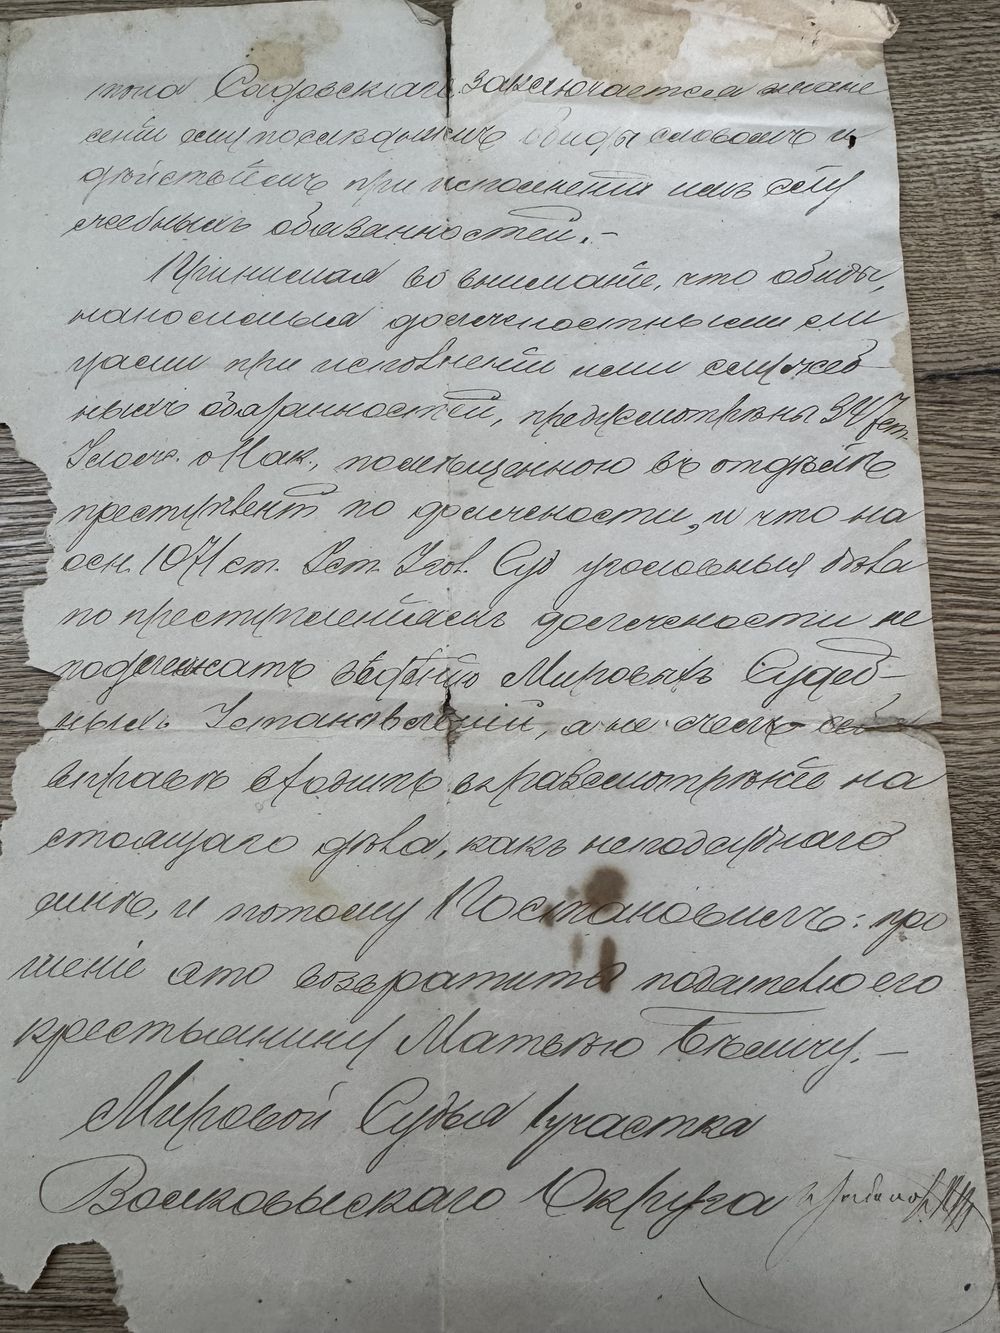 Садовскаго заключается въ нане
сеніи ему последнимъ обиды словомъ и
дѣйствіемъ при исполненіи имъ слу
жебныхъ обязанностей.–
Принимая во вниманіе, что обиды,
наносимыя должностными ли
цами при исполненіи ими служеб
ныхъ обязанностей, предусмотрѣны 347 ст.
Улож. о Нак., помѣщенною въ отдѣлѣ
преступлен. по должности, и что на
осн. 1071 ст. Уст. Угол. Суд. уголовныя дѣла
по преступленіямъ должности не
подлежатъ вѣдѣнію Мировыхъ Судеб–
ныхъ Установленій, а не счелъ себя
вправѣ входить въ разсмотрѣніе на
стоящаго дѣла, какъ неподсуднаго
мнѣ, и потому Постановилъ: про
шеніе это возвратить подателю его
крестьянину Матвѣю.–
Мировой Судья 1 участка
Волковыскаго Округа